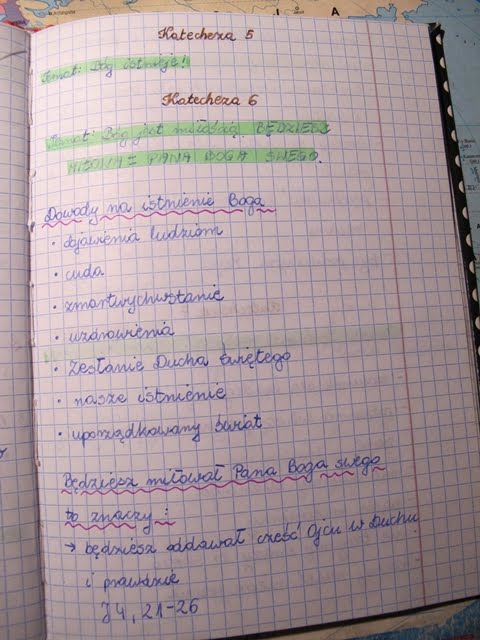 Katecheza 5
Temat: Bóg istnieje!
Katecheza 6
Temat: Bóg jest miłością. BĘDZIESZ
MIŁOWAŁ PANA BOGA SWEGO.
Dowody na istnienie Boga
• objawienia ludziom
• cuda
• zmartwychwstanie
• uzdrowienia
• Zesłanie Ducha Świętego
• nasze istnienie
• uporządkowany świat
Będziesz miłował Pana Boga swego
to znaczy:
→ będziesz oddawał cześć Ojcu w Duchu
i prawdzie
J 4, 21-26